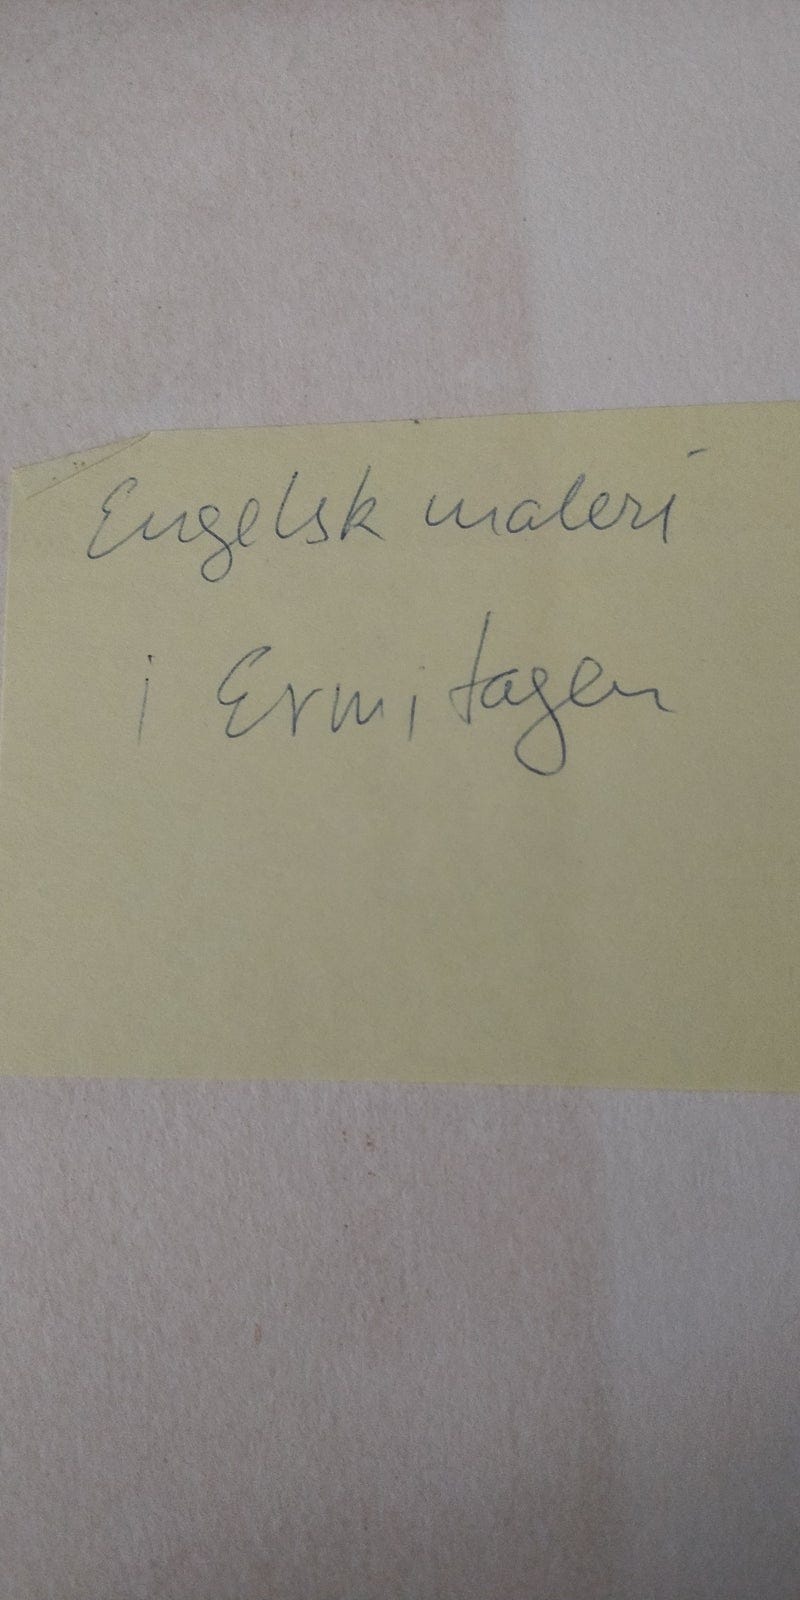 Engelsk maleri
i Ermitagen